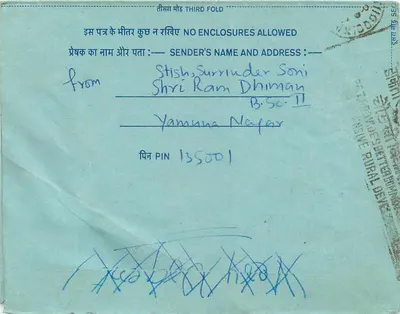 तीसरा मोड़ THIRD FOLD
इस पत्र के भीतर कुछ न रखिए NO ENCLOSURES ALLOWED
प्रेषक का नाम और पता :— SENDER'S NAME AND ADDRESS :—
from Stish, Surrinder Soni
Shri Ram Dhiman
B.Sc-II
Yamuna Nagar
पिन PIN 135001
दूसरा मोड़